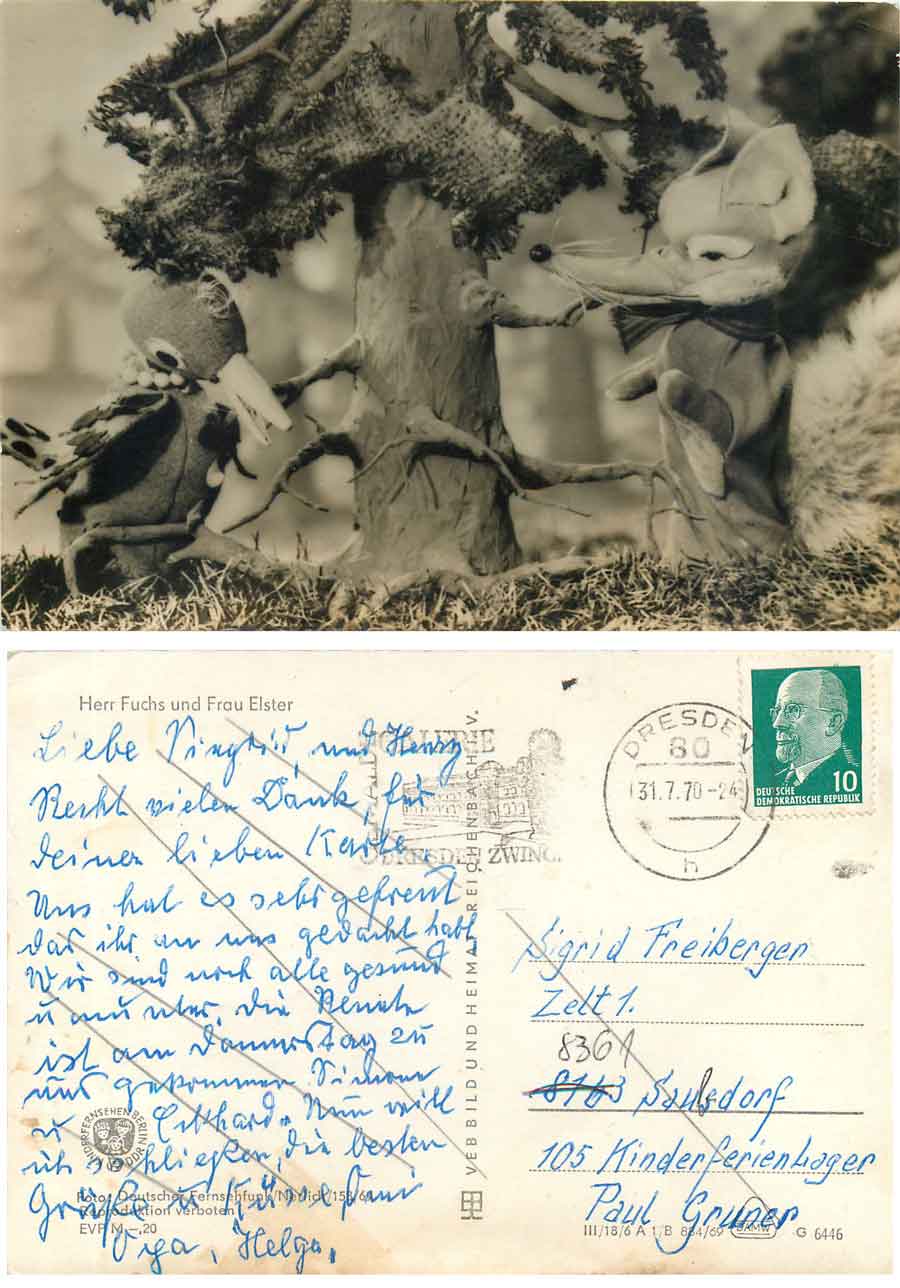 Herr Fuchs und Frau Elster
Liebe Siegrid, und Henry
Recht vielen Dank, für
deinen lieben Karte.
Uns hat es sehr gefreut
das ihr an uns gedacht habt
Wir sind noch alle gesund
u munter, die Renate
ist am Donnerstag zu
uns gekommen Simone
u Eckhard. Nun will
ich schließen, die besten
Grüße u Küsse
Opa, Helga.
GALERIE
DRESDEN ZWING.
DRESDEN
80
31.7.70-24
h
10
DEUTSCHE
DEMOKRATISCHE REPUBLIK
VEB BILD UND HEIMAT REICHENBACH i. V.
Sigrid Freiberger
Zelt 1.
8361
8163 Saupsdorf
105 Kinderferienlager
Paul Gruner
KINDERFERNSEHEN BERLIN DDR
Foto: Deutscher Fernsehfunk/Nerlich/153/69
Reproduktion verboten
EVP M —,20
III/18/6 A 1/B 884/69 DAMW G 6446